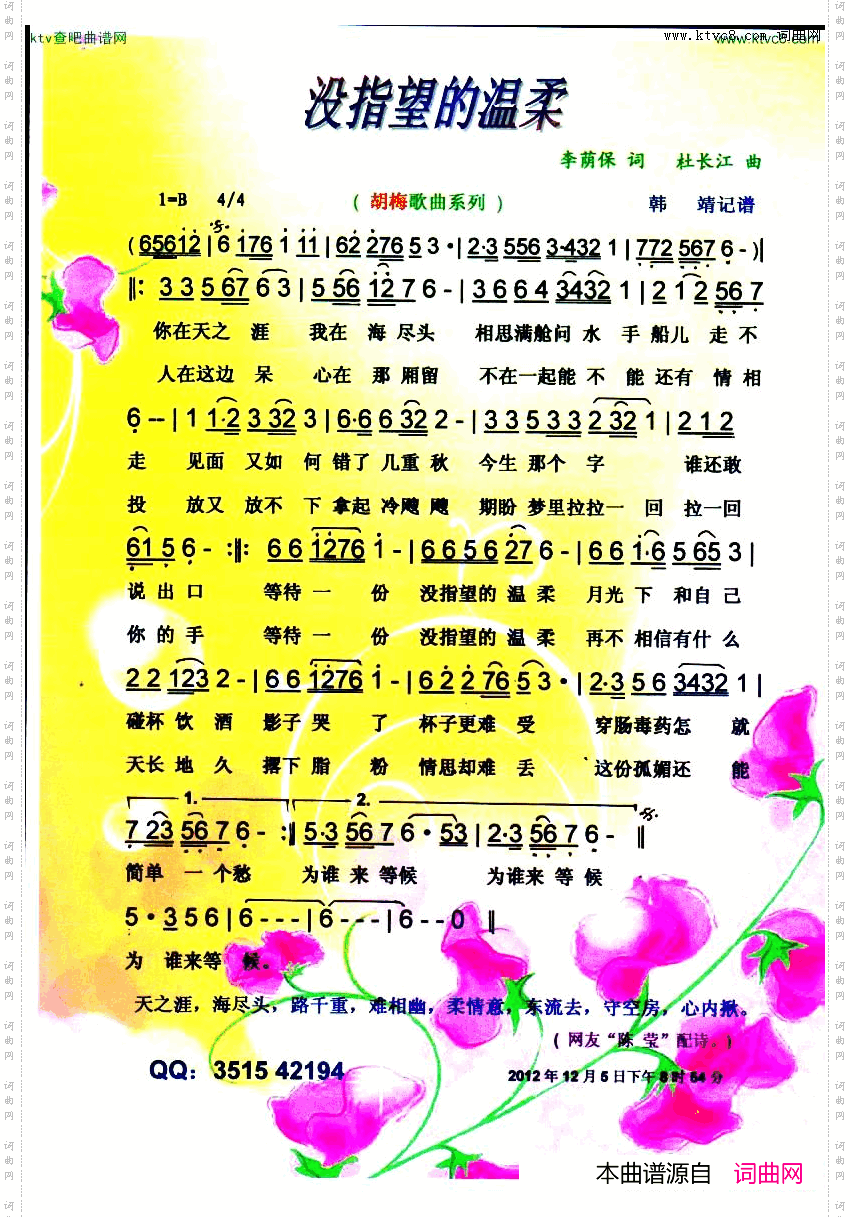 ktv查吧曲谱网
www.ktvc8.com 词曲网
www.ktvc8.com
没指望的温柔
李荫保 词 杜长江 曲
1=B 4/4 ( 胡梅歌曲系列 ) 韩 靖记谱
(65612 | 6 176 1 11 | 62 276 5 3 · | 2·3 556 3·432 1 | 772 567 6 - )||
||: 3 3 5 67 6 3 | 5 56 12 7 6 - | 3 6 6 4 3432 1 | 2 1 2 56 7
你在天之 涯 我在 海 尽头 相思满舱问 水 手 船儿 走 不
人在这边 呆 心在 那 厢留 不在一起能 不 能 还有 情 相
6 -- | 1 1·2 3 32 3 | 6·6 6 32 2 - | 3 3 5 3 3 2 32 1 | 2 1 2
走 见面 又如 何 错了 几重 秋 今生 那个 字 谁还敢
投 放又 放不 下 拿起 冷飕 飕 期盼 梦里拉拉一 回 拉一回
61 5 6 - :||: 6 6 1276 1 - | 6 6 5 6 27 6 - | 6 6 1·6 5 65 3 |
说 出 口 等待 一 份 没指望的 温 柔 月光 下 和自 己
你 的 手 等待 一 份 没指望的 温 柔 再不 相信有什 么
2 2 123 2 - | 6 6 1276 1 - | 6 2 2 76 5 3 · | 2·3 5 6 3432 1 |
碰杯 饮 酒 影子 哭 了 杯子更难 受 穿肠毒药怎 就
天长 地 久 撂下 脂 粉 情思却难 丢 这份孤媚还 能
1. 2.
7 23 56 7 6 - :|| 5·3 56 7 6 · 53 | 2·3 56 7 6 - ||
简单 一 个愁 为谁 来 等候 为谁来 等 候
5 · 3 5 6 | 6 - - - | 6 - - - | 6 - - 0 ||
为 谁来等 候。
天之涯，海尽头，路千重，难相幽，柔情意，东流去，守空房，心内揪。
( 网友“陈 莹”配诗。)
QQ：3515 42194 2012 年 12 月 5 日下午 8 时 54 分
本曲谱源自 词曲网